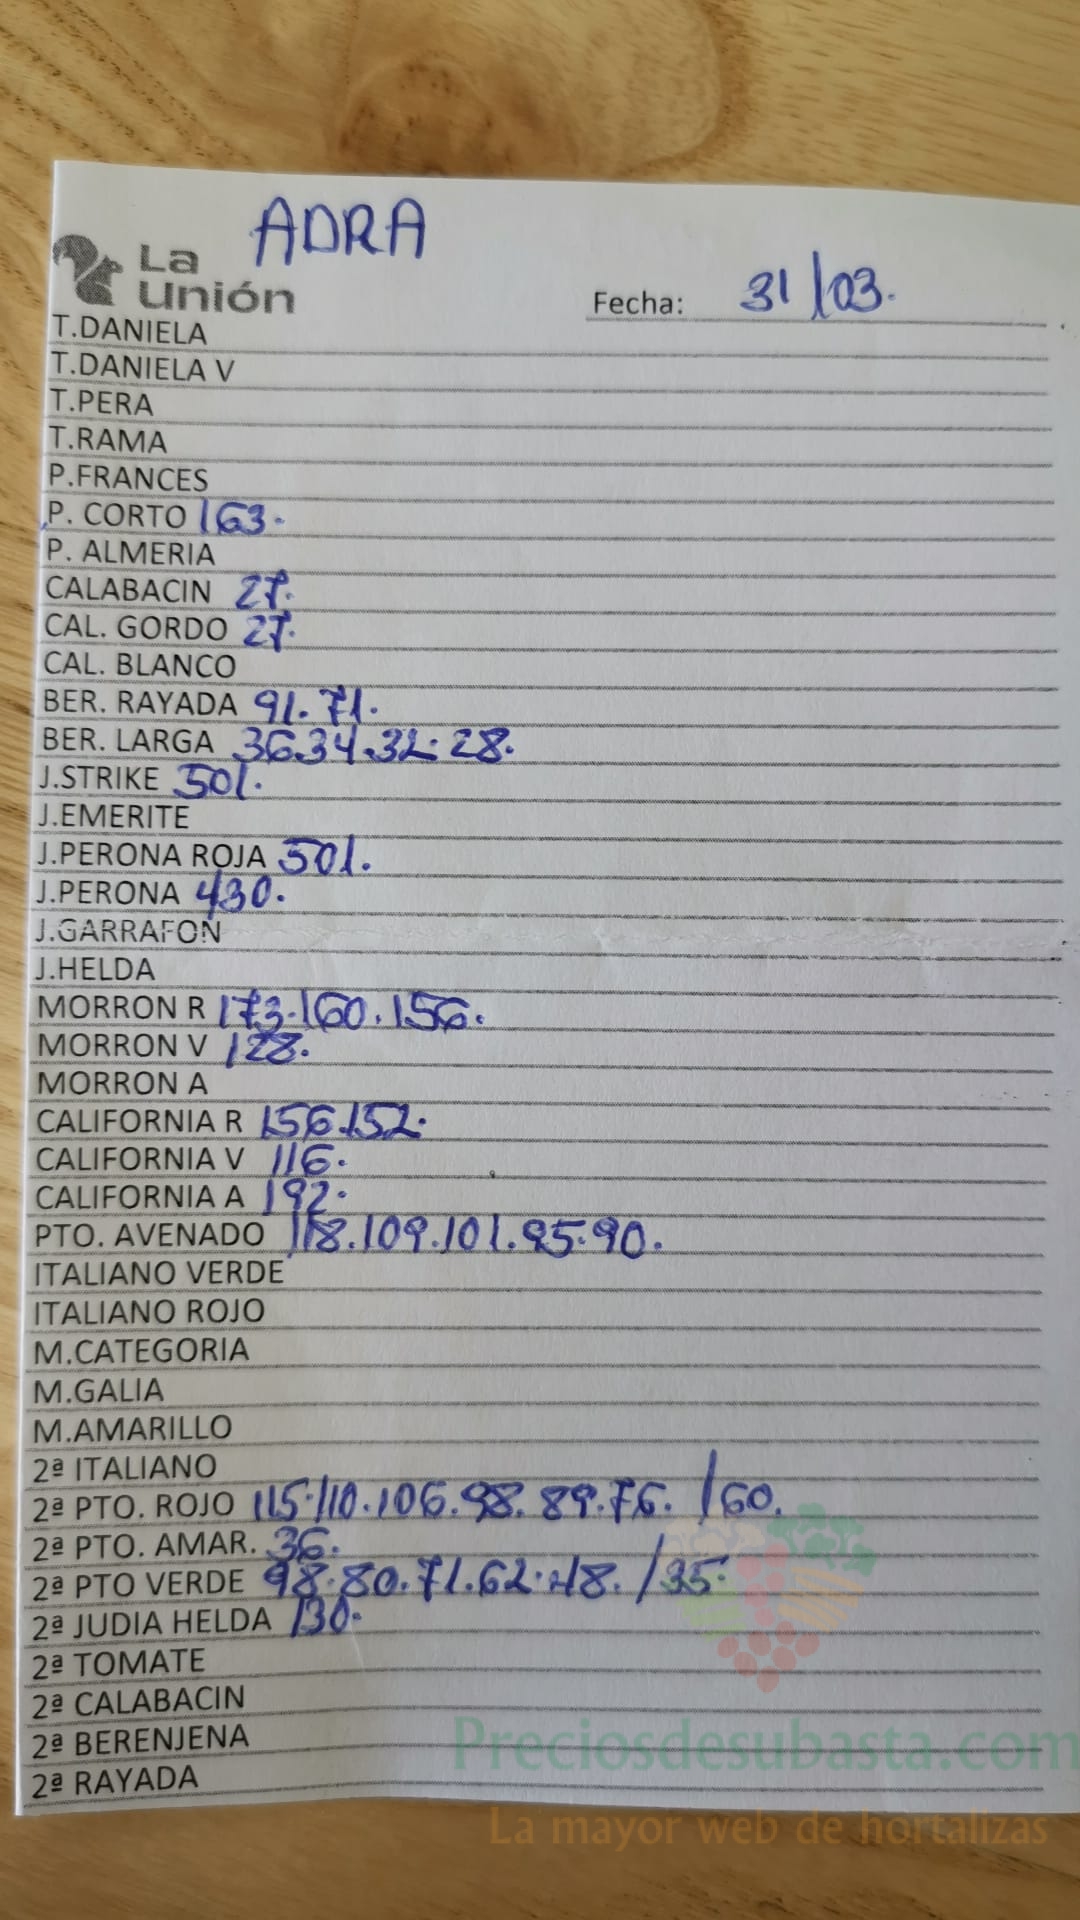 ADRA
La
Unión
Fecha: 31/03.
T.DANIELA
T.DANIELA V
T.PERA
T.RAMA
P.FRANCES
P. CORTO 163.
P. ALMERIA
CALABACIN 27.
CAL. GORDO 27.
CAL. BLANCO
BER. RAYADA 91.71.
BER. LARGA 36.34.32.28.
J.STRIKE 501.
J.EMERITE
J.PERONA ROJA 501.
J.PERONA 430.
J.GARRAFON
J.HELDA
MORRON R 173.160.156.
MORRON V 128.
MORRON A
CALIFORNIA R 156.152.
CALIFORNIA V 116.
CALIFORNIA A 192.
PTO. AVENADO 118.109.101.95.90.
ITALIANO VERDE
ITALIANO ROJO
M.CATEGORIA
M.GALIA
M.AMARILLO
2ª ITALIANO
2ª PTO. ROJO 115.110.106.98.89.76. /60.
2ª PTO. AMAR. 36.
2ª PTO VERDE 98.80.71.62.48. /35.
2ª JUDIA HELDA 130.
2ª TOMATE
2ª CALABACIN
2ª BERENJENA
2ª RAYADA
Preciosdesubasta.com
La mayor web de hortalizas